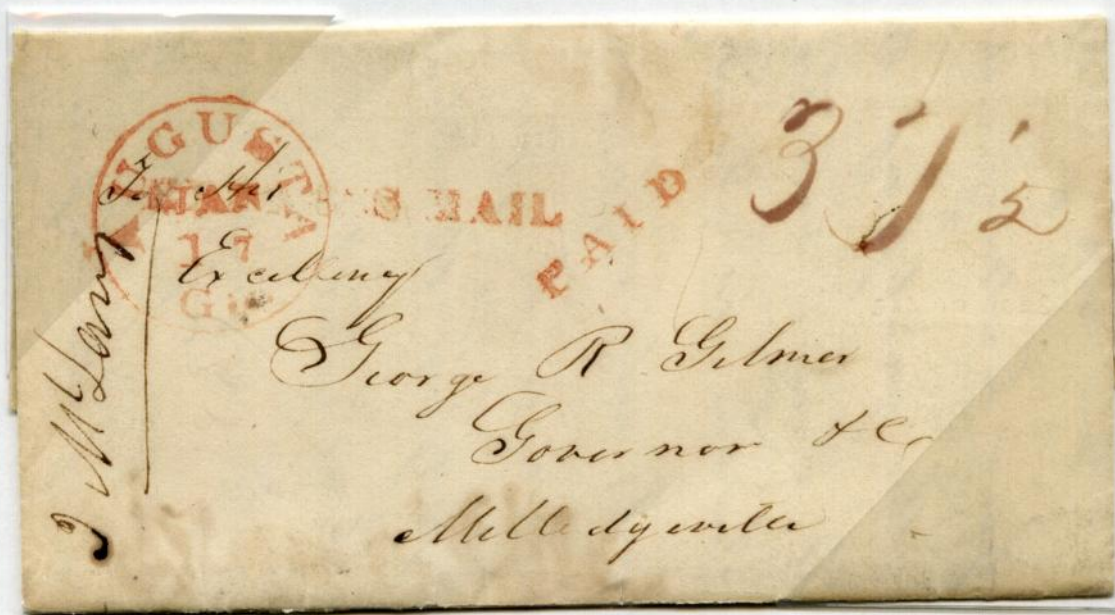 AUGUSTA
17
Ga
S MAIL
PAID
37 1/2
To His
Excellency
George R Gilmer
Governor &c
Milledgeville